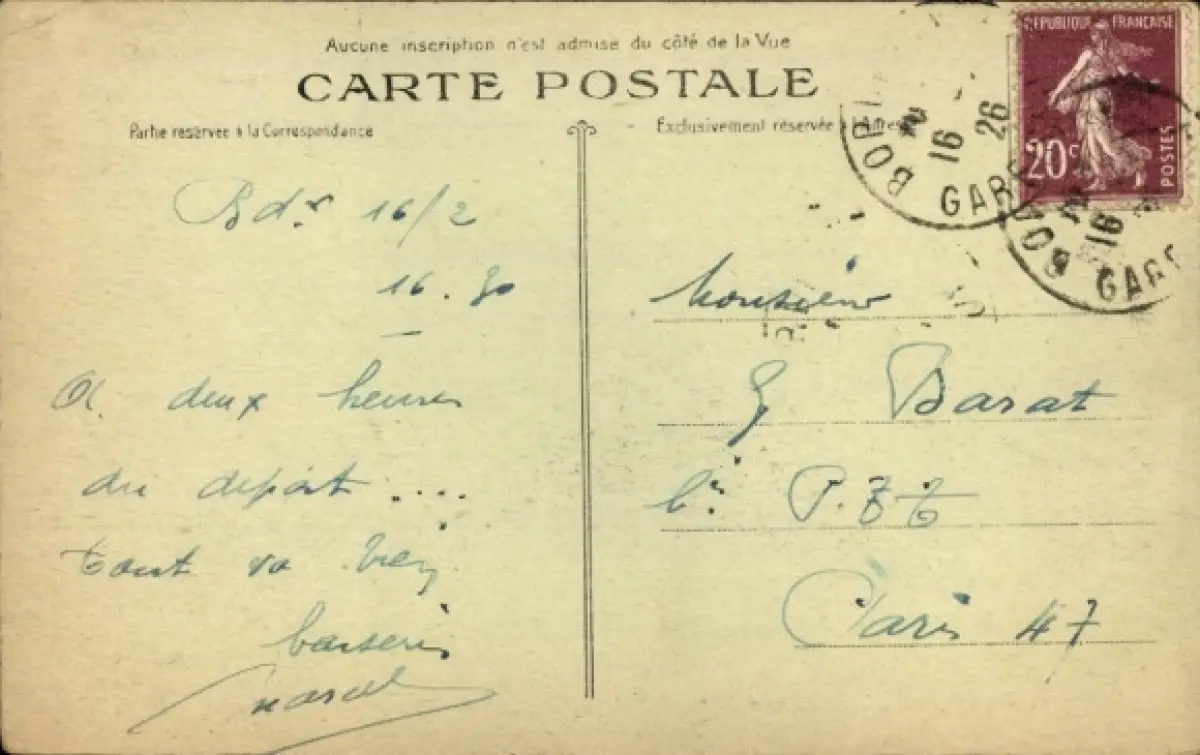 Aucune inscription n'est admise du côté de la Vue
CARTE POSTALE
Partie reservée à la Correspondance
Exclusivement réservée à l'Adresse
REPUBLIQUE FRANÇAISE
20c
POSTES
16
2
26
GARO
16
GARO
Bdx 16/2
16.30
A deux heures
du départ ....
tout va bien
baisers
Marcel
Monsieur
G Barat
bn P.T.T
Paris 47